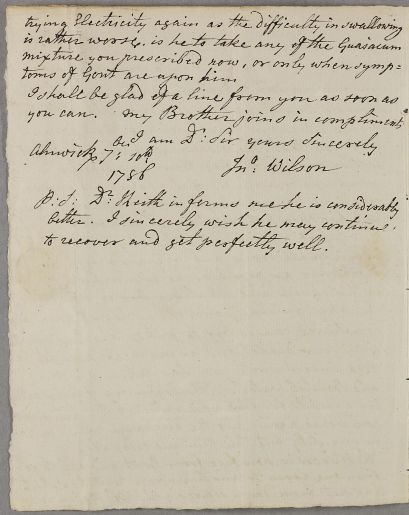 trying Electricity again as the difficulty in swallowing
is rather worse. is he to take any of the Guaiacum
mixture you prescribed now, or only when symp=
toms of Gout are upon him
I shall be glad of a line from you as soon as
you can. my Brother joins in compliments
I am Dr: Sir yours Sincerely
Alnwick 10th
1786
Jno. Wilson
P: S: Dr: Keith informs me he is considerably
better. I sincerely wish he may continue
to recover and get perfectly well.